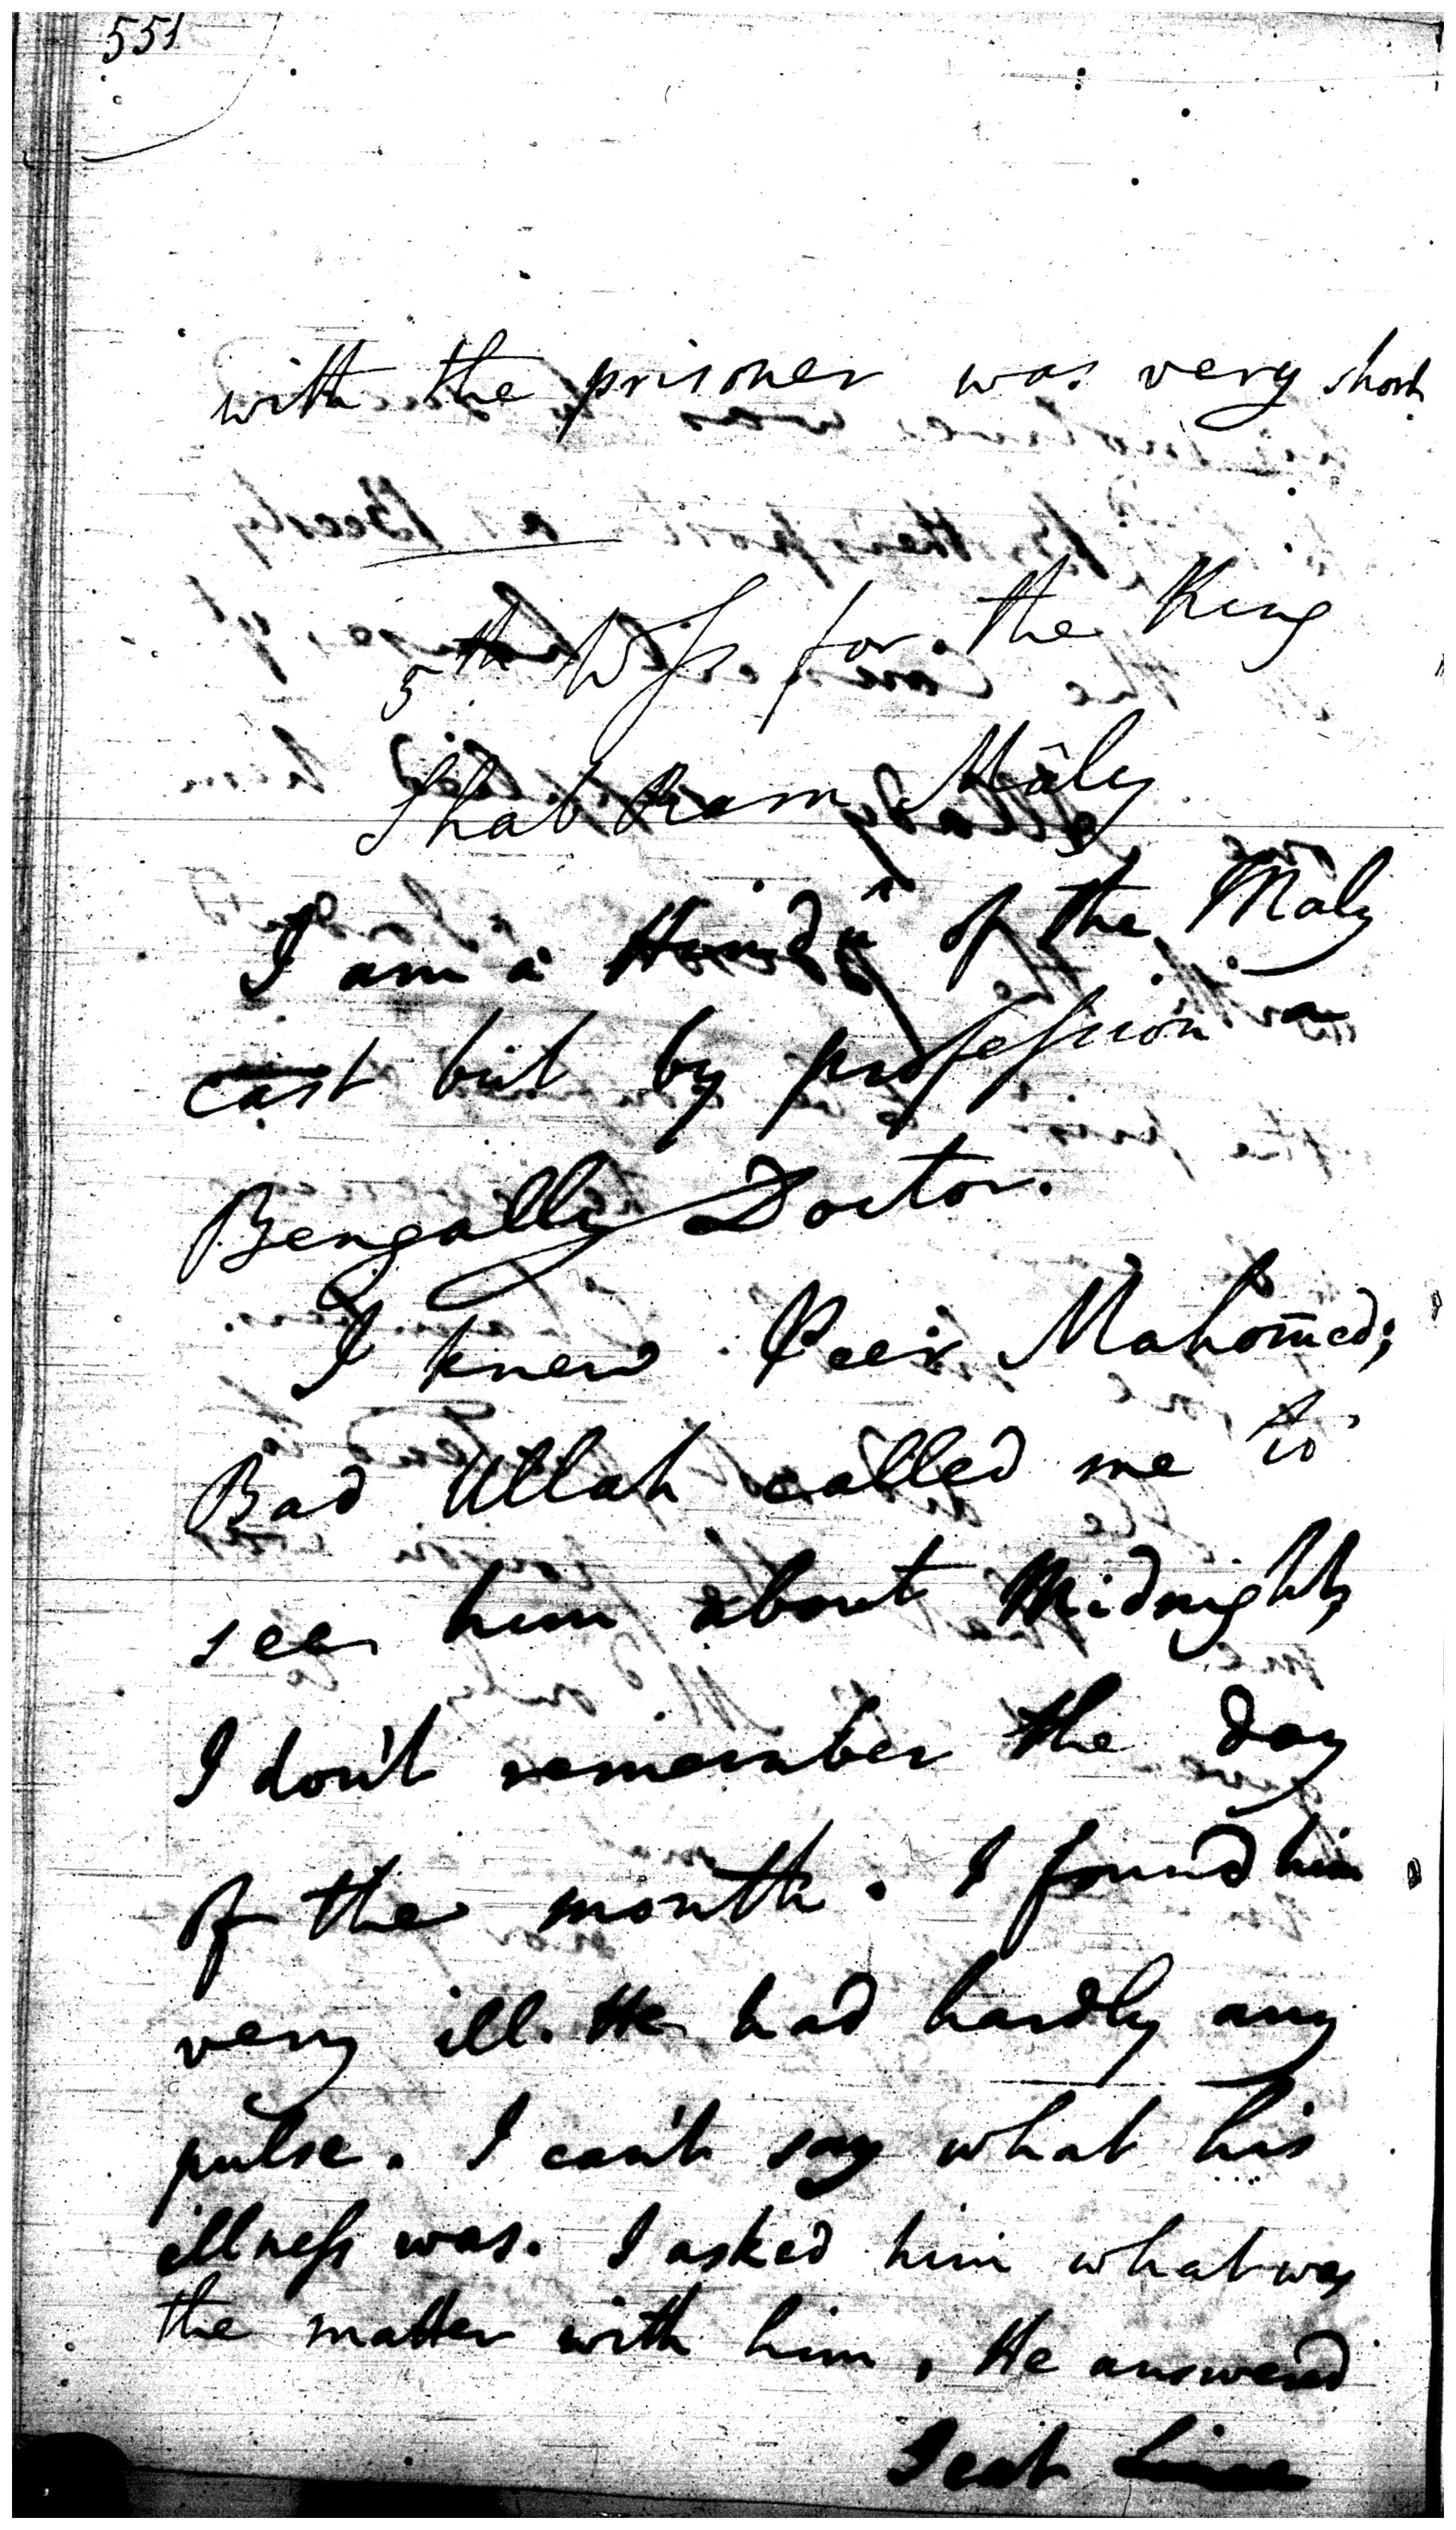 551
with the prisoner was very short
5th Wss for the King
Shab Ram Māly
I am a Hindû of the Maly
cast but by profession a
Bengally Doctor.
I knew Peer Mahom̄ed;
Bad Ullah called me to
see him about Midnight,
I don't remember the day
of the month. I found him
very ill. He had hardly any
pulse. I can't say what his
illness was. I asked him what was
the matter with him, He answered
I eat